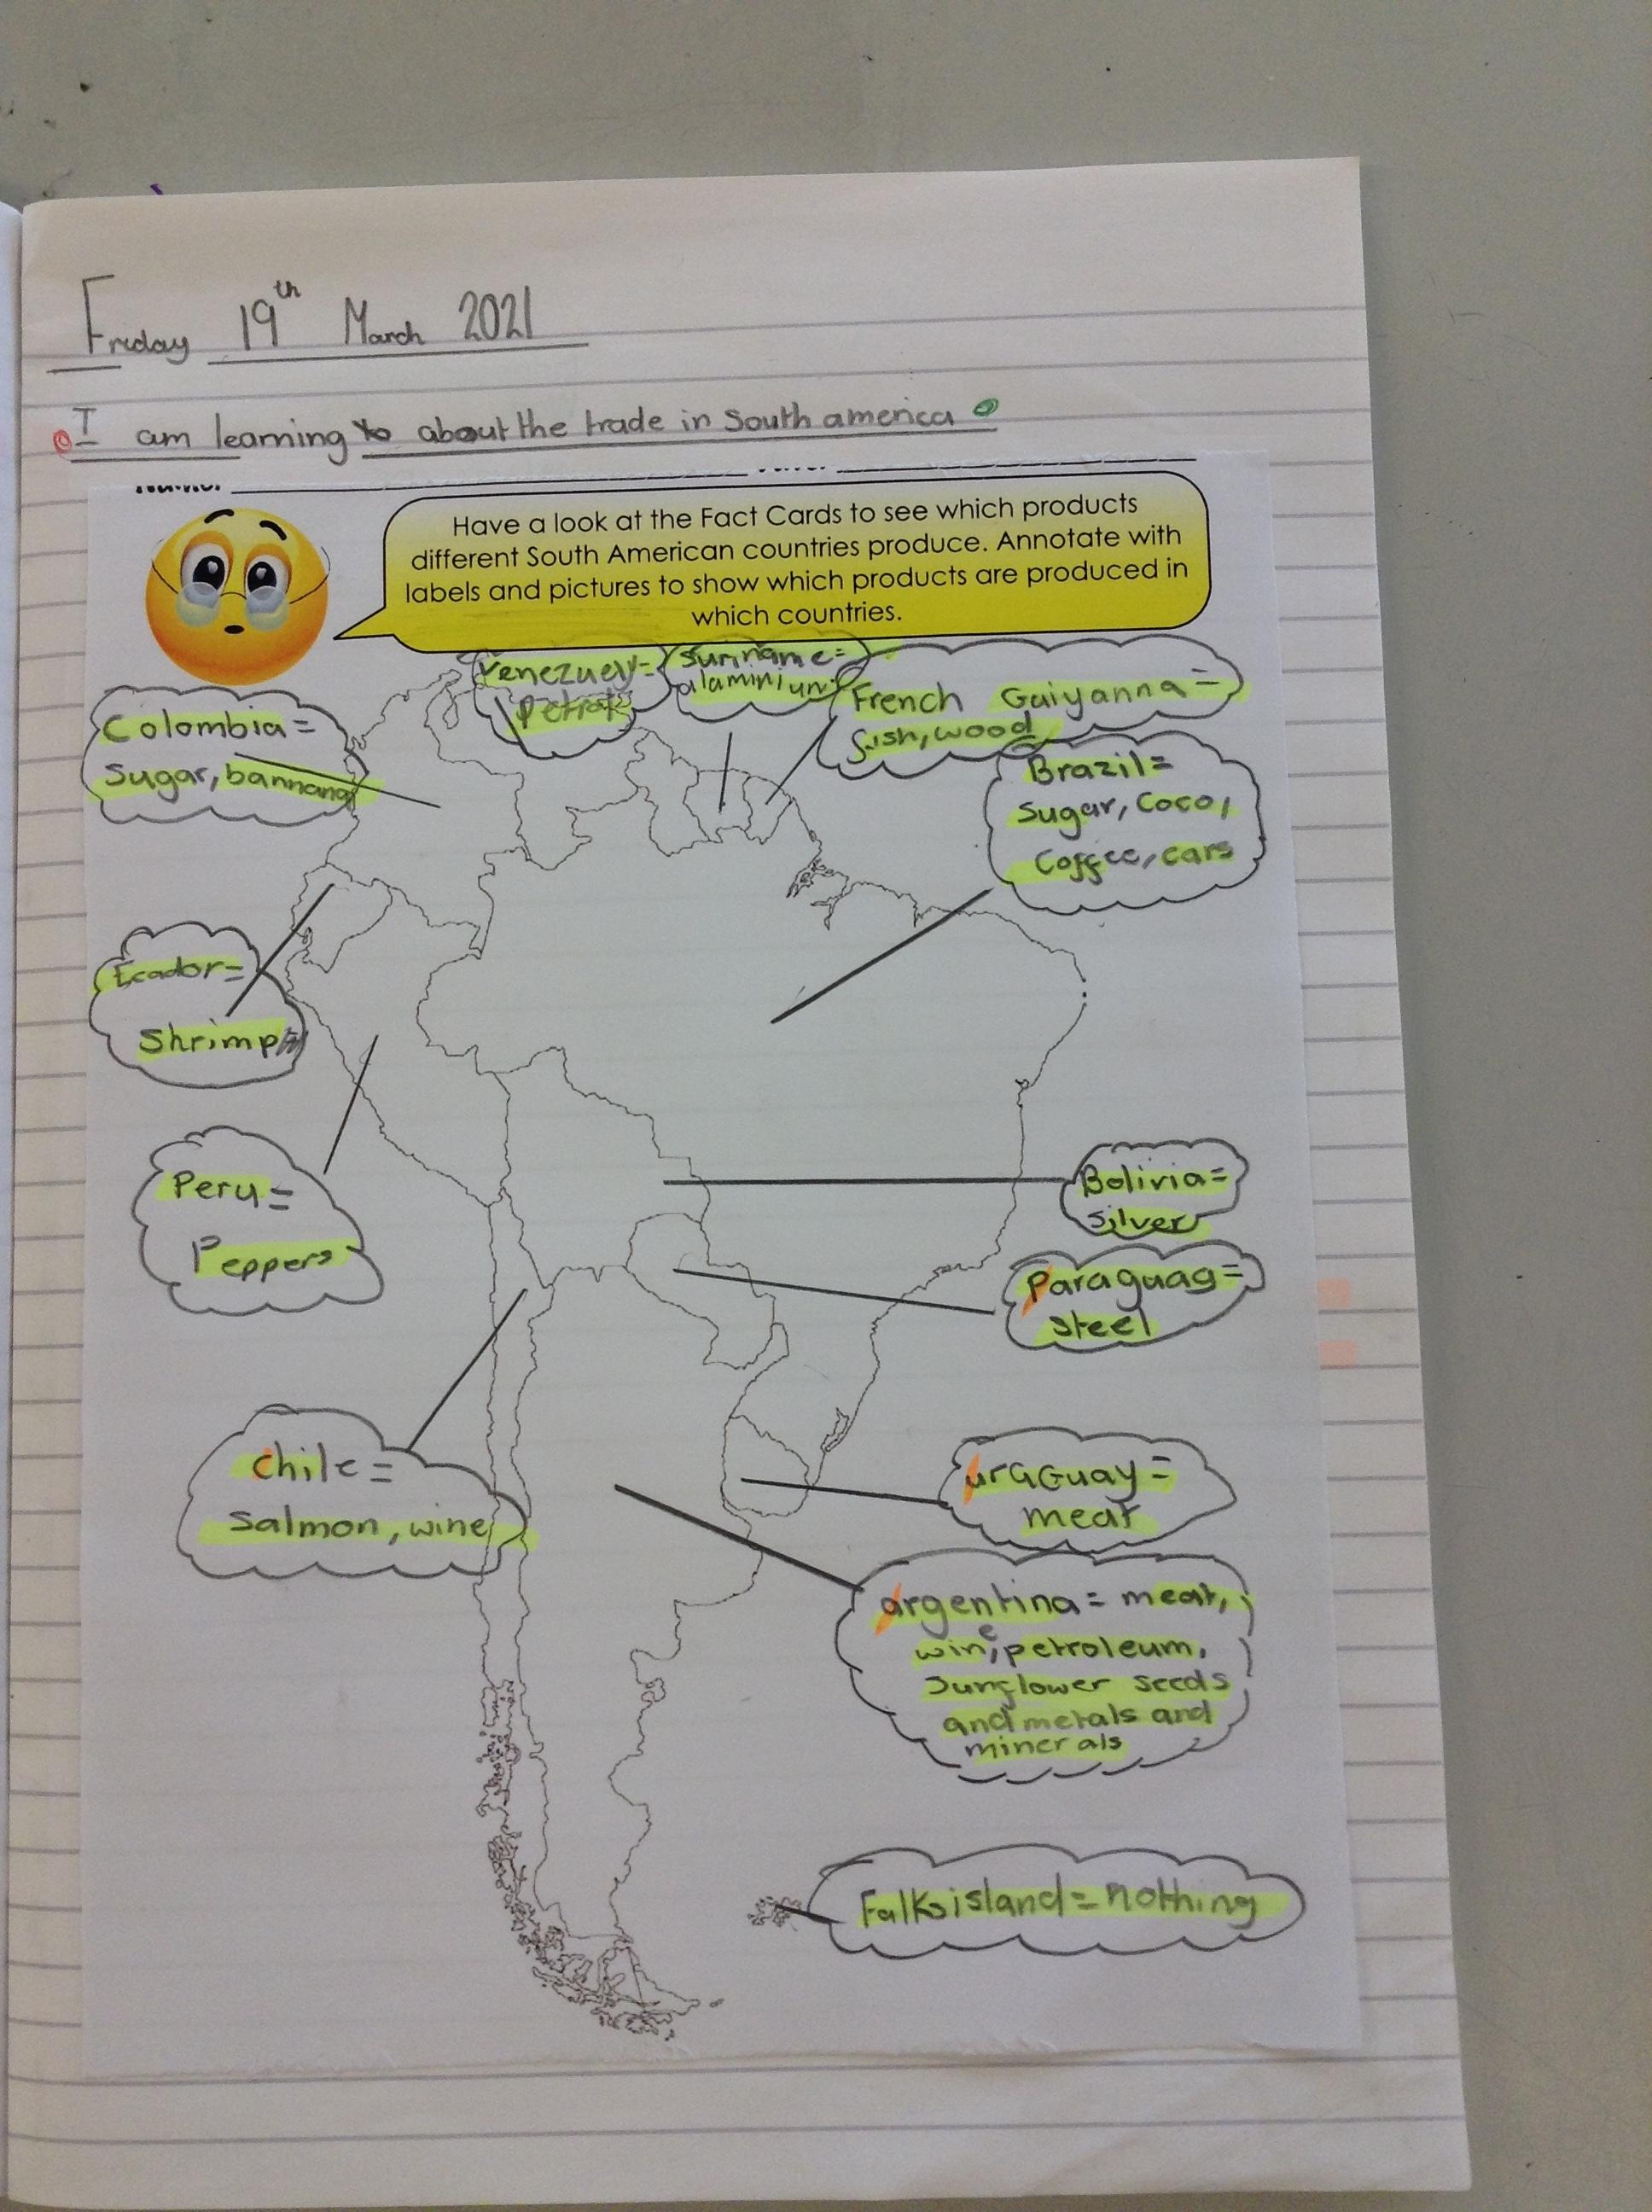 Friday 19th March 2021
I am learning to about the trade in South america
Have a look at the Fact Cards to see which products
different South American countries produce. Annotate with
labels and pictures to show which products are produced in
which countries.
Venezuely=
Petrol
Suriname=
alaminium
French Gaiyanna=
fish, wood
Colombia=
Sugar, bannana
Brazil=
Sugar, Coco,
Coffee, cars
Ecador=
Shrimp
Peru=
Peppers
Bolivia=
Silver
Paraguag=
steel
Chile=
Salmon, wine
uraGuay=
meat
argentina= meat,
wine, petroleum,
Sunflower seeds
and metals and
minerals
Falksisland= nothing